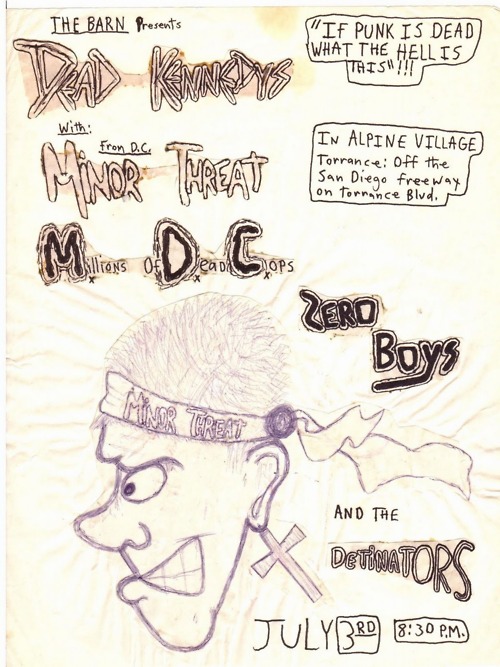 THE BARN Presents
DEAD KENNEDYS
With:
From D.C.
MINOR THREAT
Millions Of Dead Cops
"IF PUNK IS DEAD
WHAT THE HELL IS
THIS"!!!
IN ALPINE VILLAGE
Torrance: Off the
San Diego freeway
on Torrance Blvd.
ZERO
BOYS
MINOR THREAT
AND THE
DETINATORS
JULY 3RD 8:30 P.M.